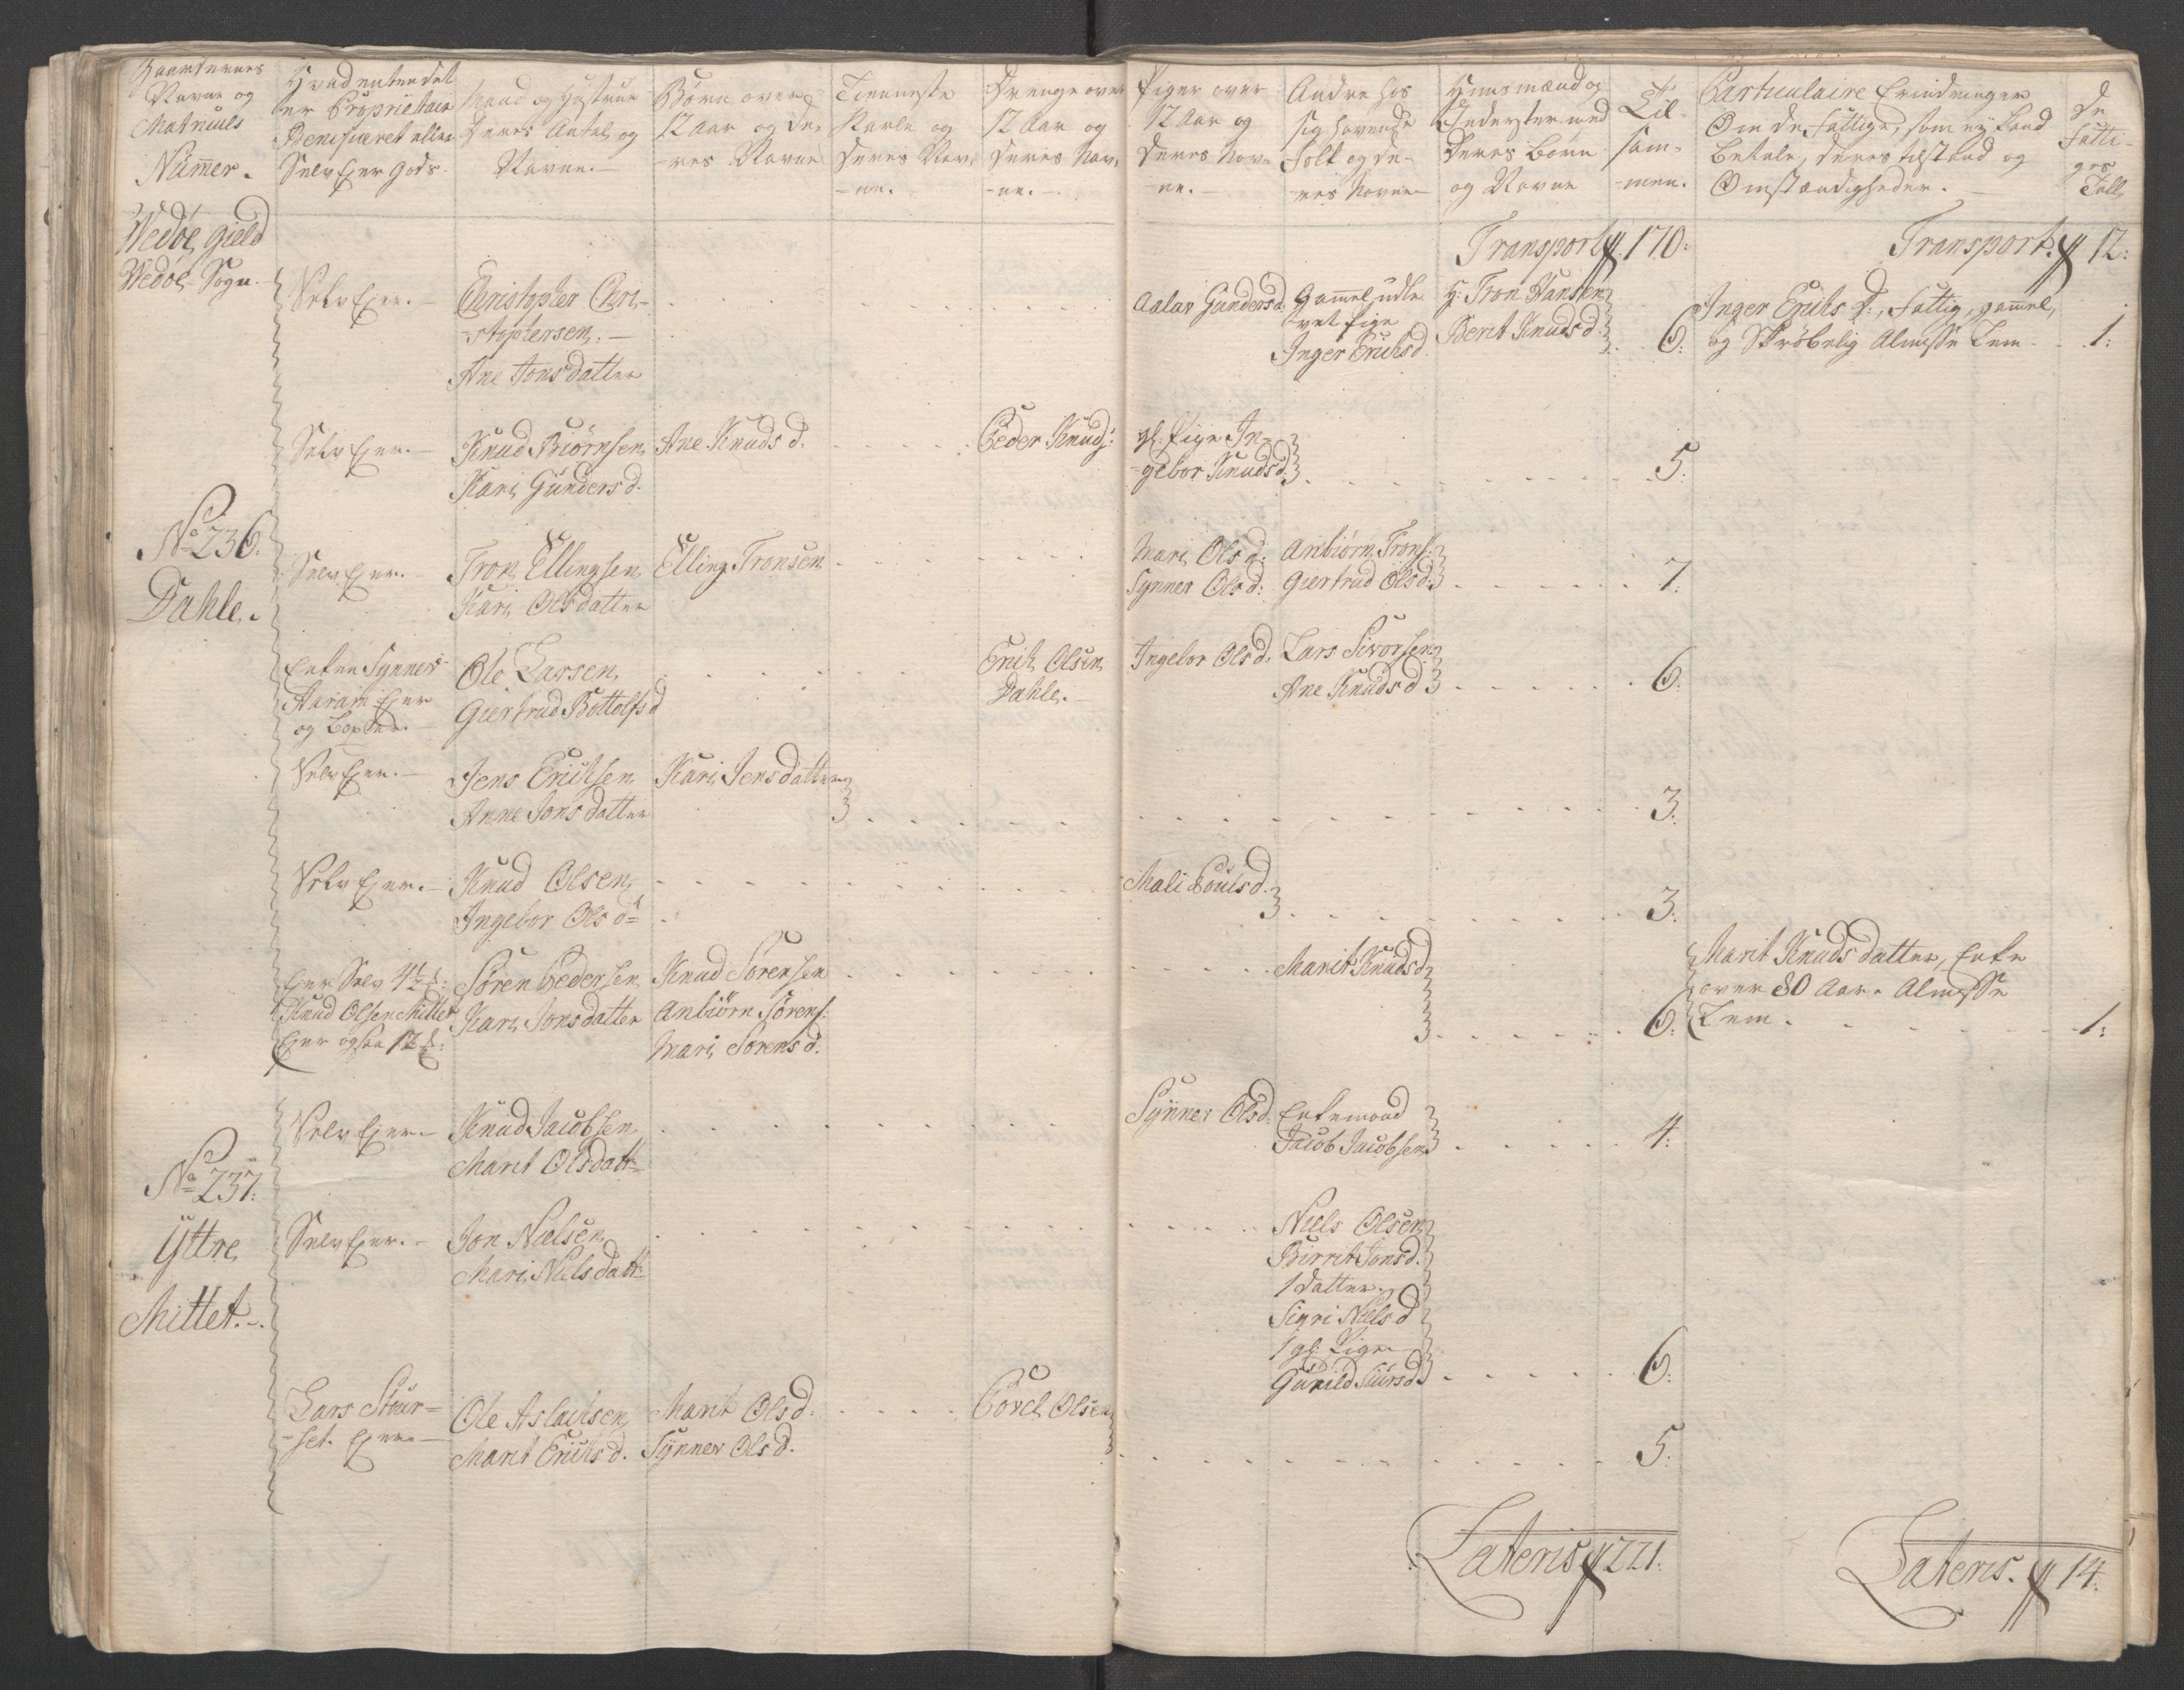 Gaardernes
Navne og
Matriculs
Nummer.
Hvad enten det
er Proprietair
Beneficeret eller
Selv Ejer gods.
Mand og Hustrue
Deres Antal og
Navne.
Børn over
12 Aar og De-
-res Navne
Tienneste
Karle og
Deres Nav-
-ne.
Drenge over
12 Aar og
Deres Nav-
-ne.
Piger over
12 Aar og
Deres Nav-
-ne.
Andre hos
sig havende
Folk og De-
-res Navne
Huusmænd og
Inderster med
Deres Børn
og Navne
Til-
sam-
-men.
Particulaire Erindringer
Om De Fattige, som ej kand
betale, Deres tilstand og
Omstændigheder.
De
Fatti-
ges
Tall
Wedøe gield
Wedøe Sogn.
Transport 170:
Transport 12:
Selv Ejer.
Christopher Chri-
-stophersen.
Ane Jons datter
Aalav Gunders d.
Gammel udle
-vet Pige
Inger Erichs d.
H: Tron Hansen
Berit Knuds d.
6:
Inger Erichs D:, fattig, gammel,
og Skrøbelig Almisse Lem
1:
Selv Ejer.
Knud Biørnsen
Kari Gunders d.
Ane Knuds d.
Peder Knuds:
gl. Pige In-
-gebor Knuds d.
5:
No 236:
Dahle.
Selv Ejer.
Tron Ellingsen
Kari Olsdatter
Elling Tronsen
Mari Ols d:
Synner Ols d:
Anbiørn Trons:
Giertrud Ols d:
7:
Enken Synner
Haram Ejer
og boxler.
Ole Larsen
Giertrud Bottolfs d
Erich Olsen
Dahle.
Ingebor Ols d.
Lars Sivorsen
Ane Knuds d
6:
Selv Ejer.
Jens Erichsen
Anne Jons datter
Kari Jens datter
3:
Selv Ejer.
Knud Olsen
Ingebor Ols dt
Mali Pouls d.
3:
Ejer Selv 4½
Knud Olsen Mittet
Ejer ogsaa 1½
Søren Pedersen
Kari Jonsdatter
Knud Sørensen
Anbiørn Sørens:
Mari Sørens d:
Marit Knuds d
6:
Marit Knuds datter, Enke
over 80 Aar. Almisse
Lem.
1:
No 237:
Yttre
Mittet.
Selv Ejer.
Knud Jacobsen
Marit Olsdatt
Synner Ols d.
Enkemand
Jacob Jacobsen
4:
Selv Ejer.
Jon Nielsen
Mari Niels datt
Niels Olsen
Birrit Jons d.
1 datter
Sigri Niels d
1 gl: Pige
Gunild Siurs d.
6:
Lars Stuur-
-set. Ejer
Ole Aslachsen
Marit Erichs d.
Marit Ols d.
Synner Ols d.
Povel Olsen
5:
Lateris 221:
Lateris. 14: